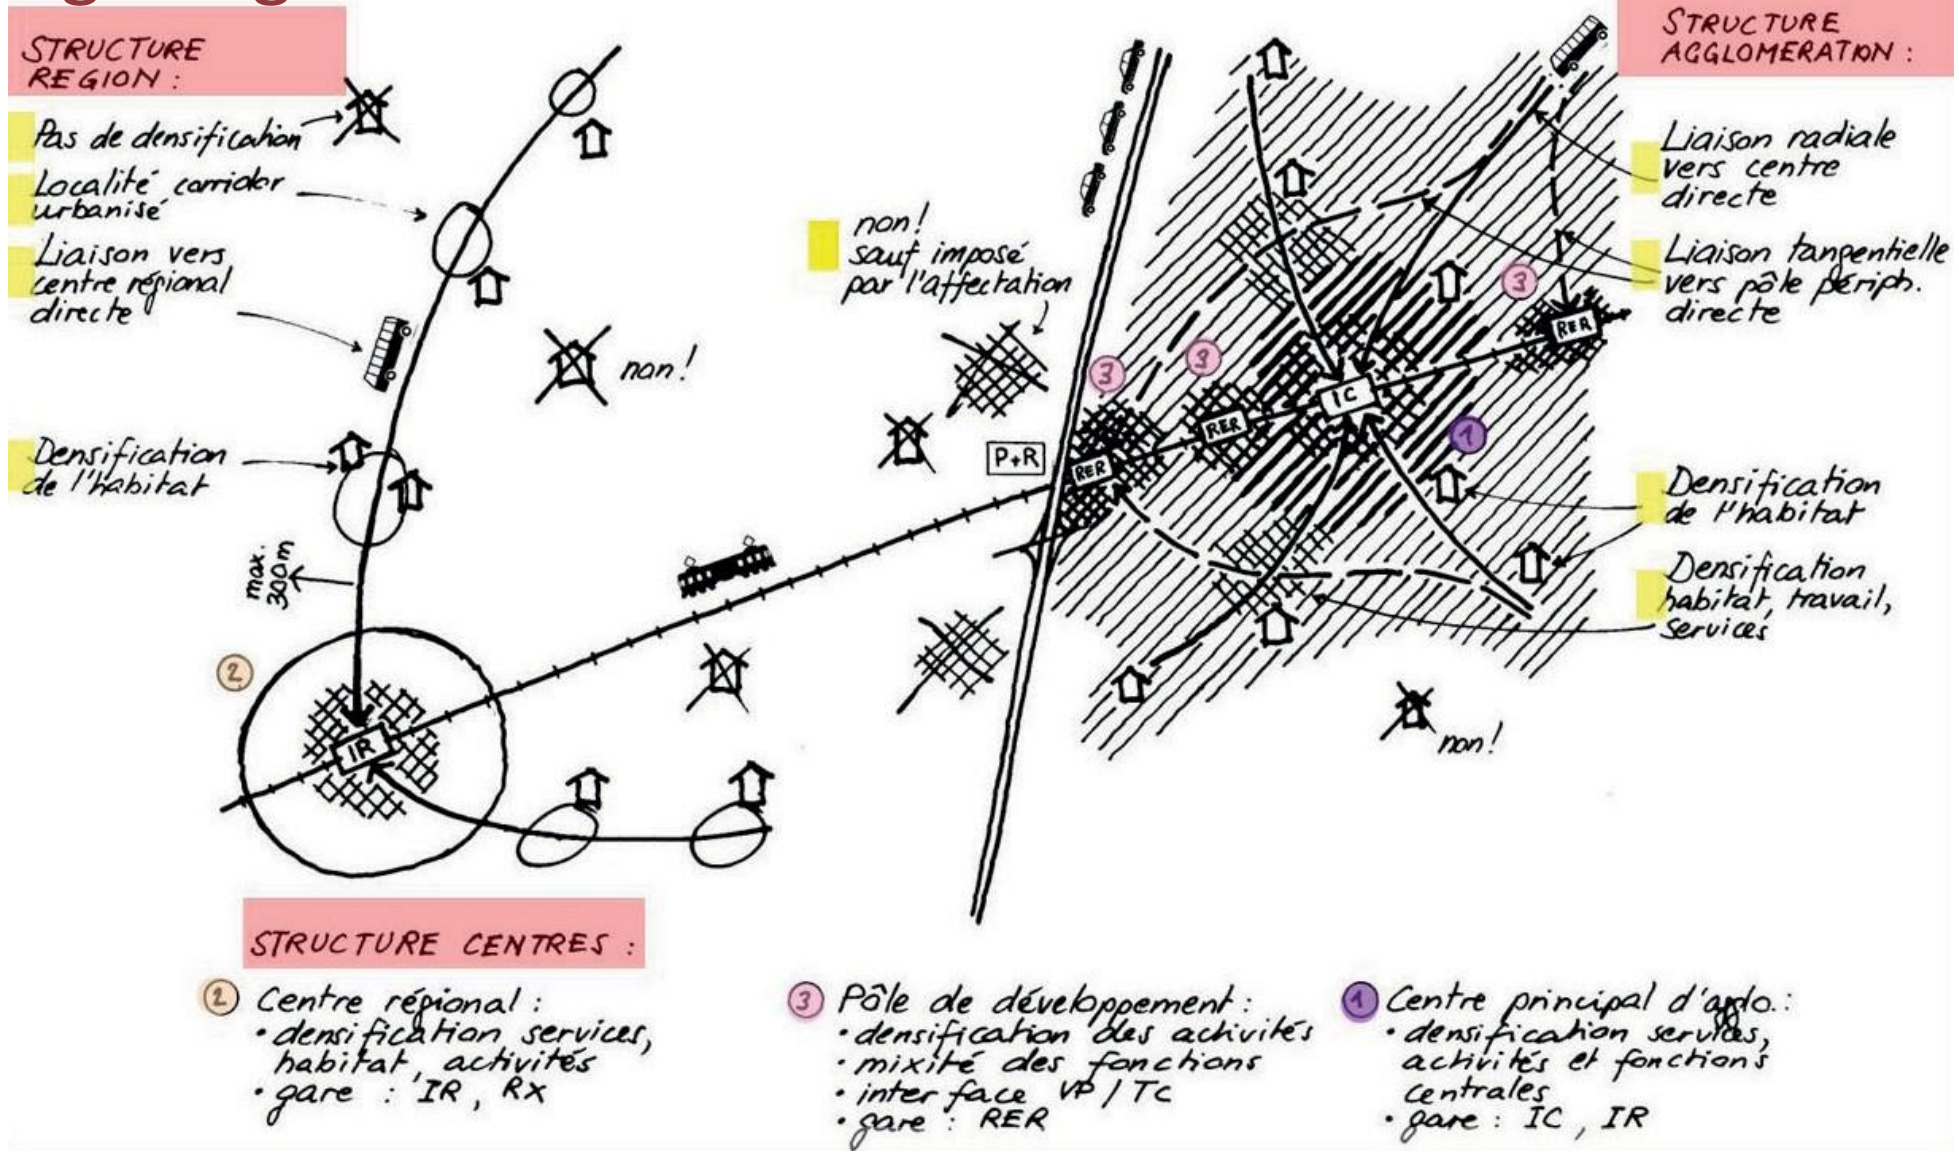 STRUCTURE
REGION :
Pas de densification
Localité corridor
urbanisé
Liaison vers
centre régional
directe
Densification
de l'habitat
max.
300m
2
IR
non!
non!
sauf imposé
par l'affectation
P+R
RER
3
3
RER
IC
1
3
RER
non!
STRUCTURE
AGGLOMERATION :
Liaison radiale
vers centre
directe
Liaison tangentielle
vers pôle périph.
directe
Densification
de l'habitat
Densification
habitat, travail,
services
STRUCTURE CENTRES :
2 Centre régional :
• densification services,
habitat, activités
• gare : IR, RX
3 Pôle de développement :
• densification des activités
• mixité des fonctions
• interface VP / TC
• gare : RER
1 Centre principal d'agglo. :
• densification services,
activités et fonctions
centrales
• gare : IC, IR